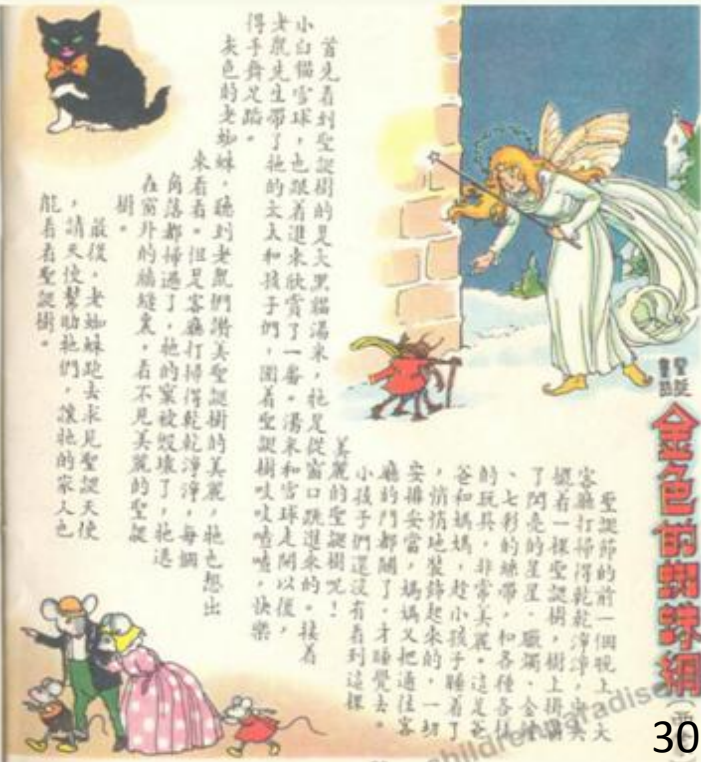 聖誕
童話
金色的蜘蛛網
聖誕節的前一個晚上，大
客廳打掃得乾乾淨淨，中央
擺着一棵聖誕樹，樹上掛滿
了閃亮的星星、臘燭、金鍊
、七彩的絲帶，和各種各樣
的玩具，非常美麗。這是爸
爸和媽媽，趁小孩子睡着了
，悄悄地裝飾起來的，一切
安排妥當，媽媽又把通往客
廳的門都關了，才睡覺去。
小孩子們還沒有看到這棵
美麗的聖誕樹呢！
首先看到聖誕樹的是大黑貓湯米，牠是從窗口跳進來的。接着
小白貓雪球，也跟着進來欣賞了一番。湯米和雪球走開以後，
老鼠先生帶了牠的太太和孩子們，圍着聖誕樹吱吱喳喳，快樂
得手舞足蹈。
灰色的老蜘蛛，聽到老鼠們讚美聖誕樹的美麗，牠也想出
來看看。但是客廳打掃得乾乾淨淨，每個
角落都掃過了，牠的窠被毀壞了，牠退
在窗外的牆縫裏，看不見美麗的聖誕
樹。
最後，老蜘蛛跑去求見聖誕天使
，請天使幫助牠們，讓牠的家人也
能看看聖誕樹。
children paradise
30